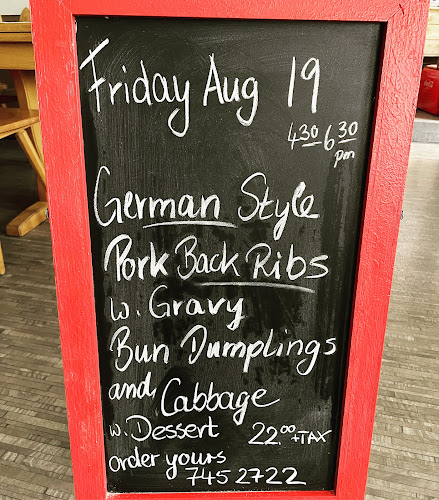 Friday Aug 19
430-630
pm
German Style
Pork Back Ribs
w. Gravy
Bun Dumplings
and Cabbage
w. Dessert 22.00+TAX
order yours
7452722